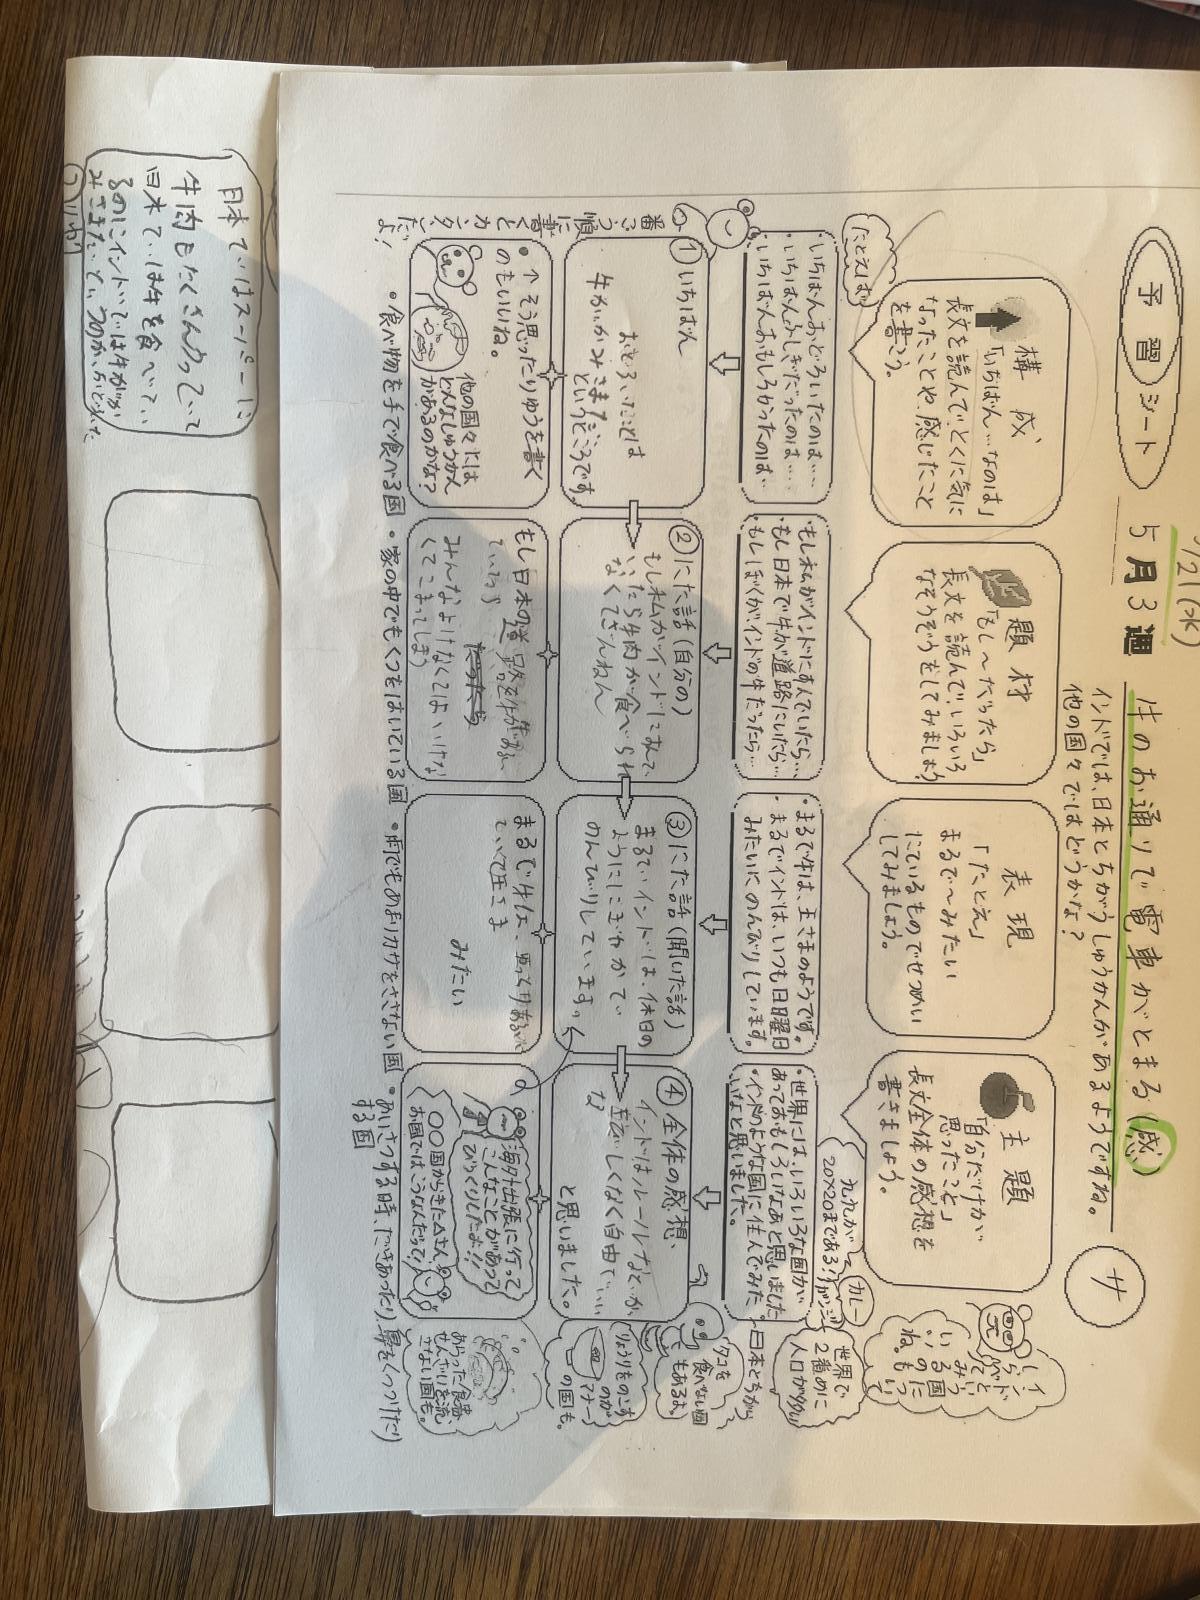 予習シート
5月3週
牛のお通りで電車がとまる(感)
サ
インドでは、日本とちがうしゅうかんがあるようですね。
他の国々ではどうかな？
構成
「いちばん…なのは」
長文を読んで、とくに気に
なったことや、感じたこと
を書こう。
たとえば
・いちばんおどろいたのは…
・いちばんふしぎだったのは…
・いちばんおもしろかったのは…
番ごう順に書くとカンタンだよ！
①いちばん
おどろいたことは
牛ががみさまだ
というところです。
・↑そう思ったりゆうを書く
のもいいね。
他の国々には
どんなしゅうかん
があるのかな？
題材
「もし〜だったら」
長文を読んで、いろいろ
なそうぞうをしてみましょう
もし私がインドにすんでいたら…
もし日本で牛が道路にいたら…
・もしぼくがインドの牛だったら…
②にた話(自分の)
もし私がインドにすんで
いたら牛肉が食べられ
なくてざんねん
もし日本の道路を牛が
みんなよけなくてはいけな
くてこまってしまう
表現
「たとえ」
まるで〜みたい
にているものでせつめい
してみましょう。
・まるで牛は、王さまのようです。
まるでインドは、いつも日曜日
みたいにのんびりしています。
③にた話(聞いた話)
まるでインドは、休日の
ようににぎやかで
のんびりしています。
まるで牛は、
王さま
みたい
主題
「自分だけが
思ったこと」
長文全体の感想を
書きましょう。
・世界には、いろいろな国が
あっておもしろいなあと思いました
・インドのような国に住んでみた
いなと思いました。
④全体の感想、
インドはルールなどが
きびしくなく自由でいい
な
と思いました。
海外出張に行って
こんなことがあって
びっくりしたよ！！
〇〇国からきた△さん、
お国では、どうなんだって！
・食べ物を手で食べる国
・家の中でもくつをはいている国
・雨でもあまりカサをささない国
・あいさつする時、だきあったり、鼻をくっつけたり
する国
九九が
20×20まである！
カレー
世界で
2番めに
人口が多い
タコを
食べない国
もあるよ。
りょうりをのこす
のが
マナー
の国も。
あらった食器、
せんざいを流
さない国も。
日本ではスーパーに
牛肉もたくさんうっていて
日本では牛を食べてい
るのにインドでは牛がか
みさまだというのが、